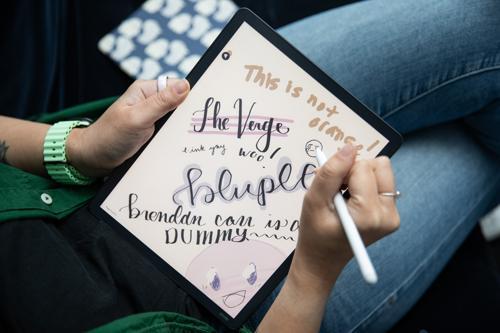 This is not
orange!
The Verge
woo!
bluple
brendan can is a
DUMMY